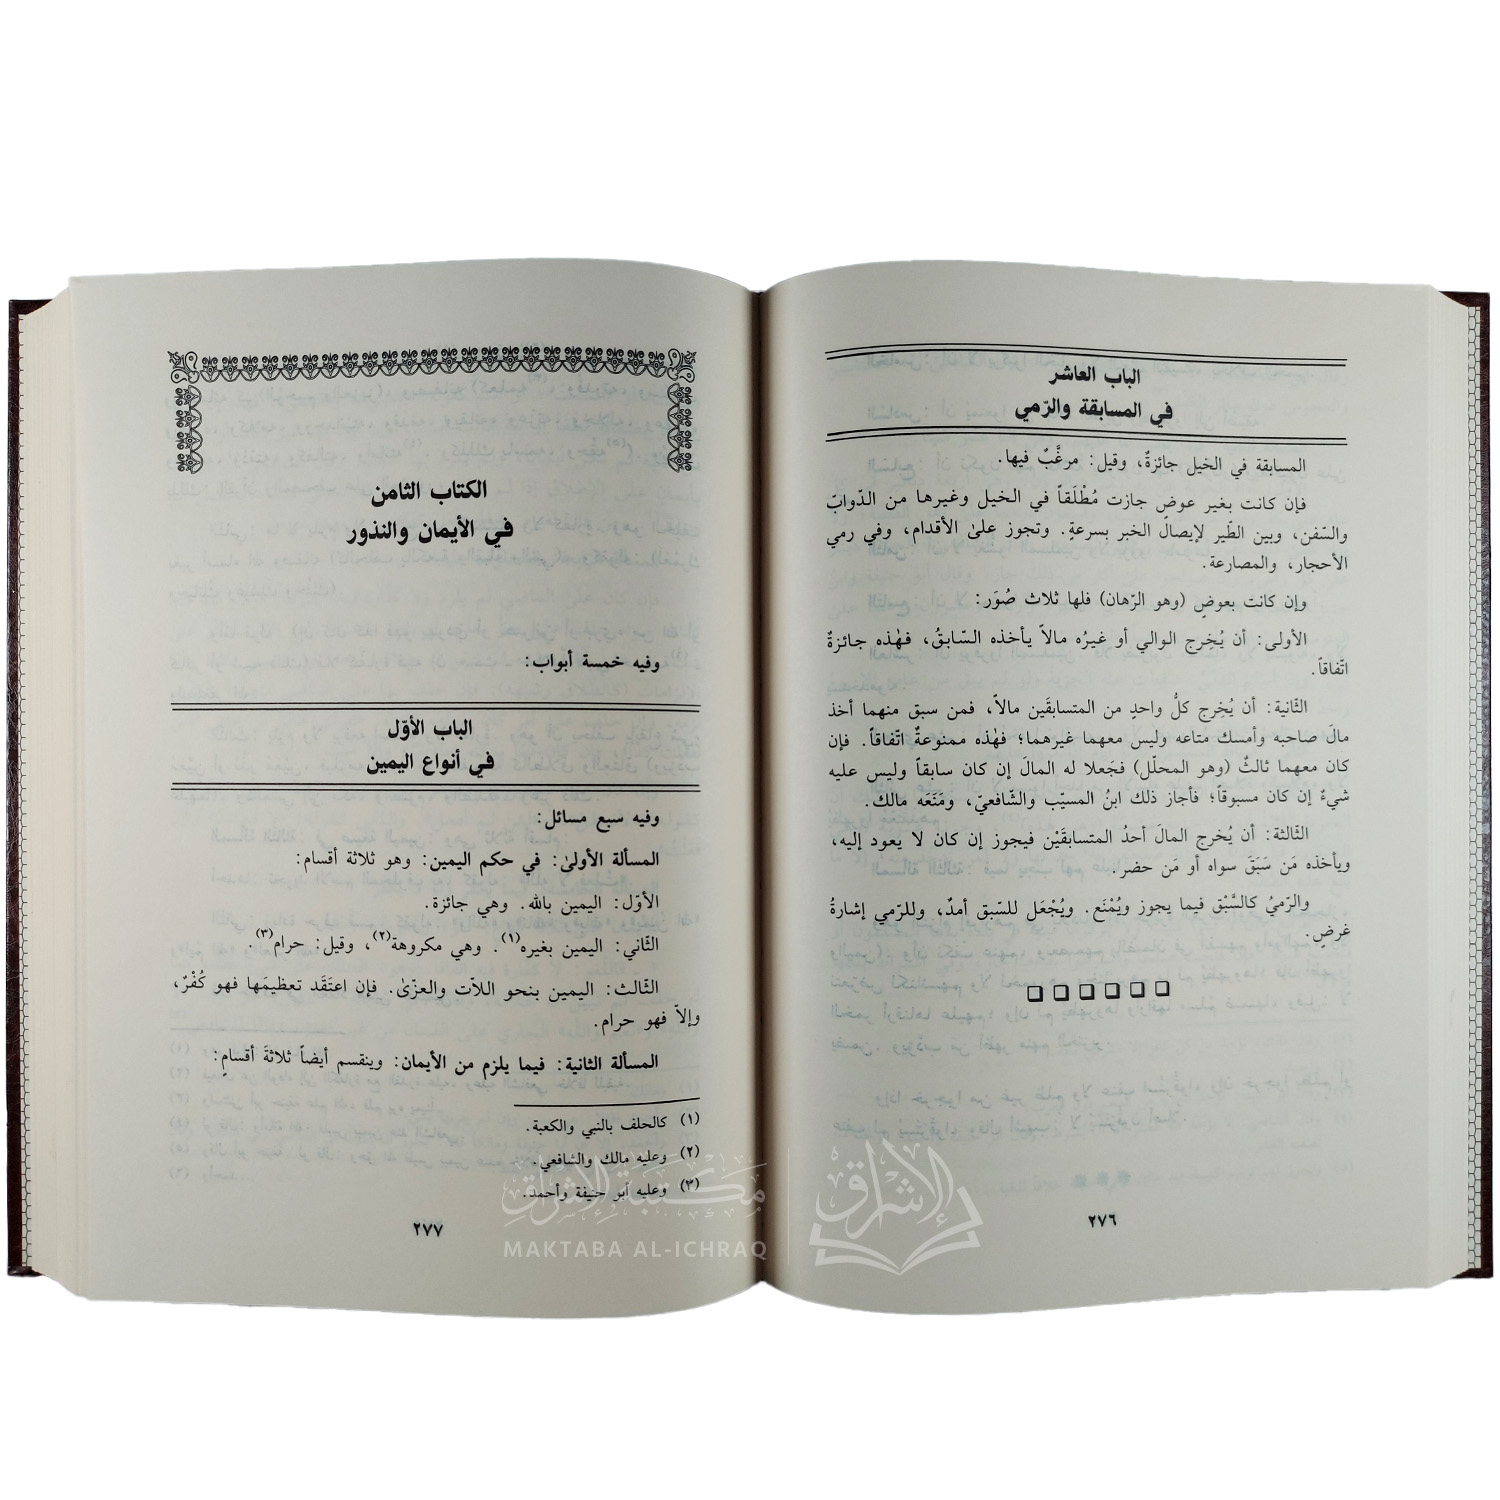 الباب العاشر
في المسابقة والرّمي
المسابقة في الخيل جائزةٌ، وقيل: مرغَّبٌ فيها.
فإن كانت بغير عوضٍ جازت مُطْلَقاً في الخيل وغيرها من الدّوابّ
والسّفن، وبين الطّير لإيصال الخبر بسرعةٍ. وتجوز علىٰ الأقدام، وفي رمي
الأحجار، والمصارعة.
وإن كانت بعوضٍ (وهو الرّهان) فلها ثلاث صُوَر:
الأولى: أن يُخِرج الوالي أو غيرُه مالاً يأخذه السّابقُ، فهٰذه جائزةٌ
اتّفاقاً.
الثّانية: أن يُخِرج كلُّ واحدٍ من المتسابقَين مالاً، فمن سبق منهما أخذ
مالَ صاحبه وأمسك متاعه وليس معهما غيرهما؛ فهٰذه ممنوعةٌ اتّفاقاً. فإن
كان معهما ثالثٌ (وهو المحلّل) فجَعلا له المالَ إن كان سابقاً وليس عليه
شيءٌ إن كان مسبوقاً؛ فأجاز ذلك ابنُ المسيّب والشّافعيّ، ومَنَعَه مالك.
الثّالثة: أن يُخرج المالَ أحدُ المتسابقَيْن فيجوز إن كان لا يعود إليه،
ويأخذه مَن سَبَقَ سواه أو مَن حضر.
والرّميُ كالسَّبْق فيما يجوز ويُمْنَع. ويُجْعَل للسّبق أمدٌ، وللرّمي إشارةُ
غرضٍ.
٢٧٦
الكتاب الثامن
في الأيمان والنذور
وفيه خمسة أبواب:
الباب الأوّل
في أنواع اليمين
وفيه سبع مسائل:
المسألة الأولىٰ: في حكم اليمين: وهو ثلاثة أقسام:
الأوّل: اليمين بالله. وهي جائزة.
الثّاني: اليمين بغيره(١). وهي مكروهة(٢)، وقيل: حرام(٣).
الثّالث: اليمين بنحو اللاّت والعزّىٰ. فإن اعتَقَد تعظيمَها فهو كُفْرٌ،
وإلاّ فهو حرام.
المسألة الثانية: فيما يلزم من الأيمان: وينقسم أيضاً ثلاثةَ أقسامٍ:
(١) كالحلف بالنبي والكعبة.
(٢) وعليه مالك والشافعي.
(٣) وعليه أبو حنيفة وأحمد.
٢٧٧
مكتبة الإشراق
MAKTABA AL-ICHRAQ
الإشراق